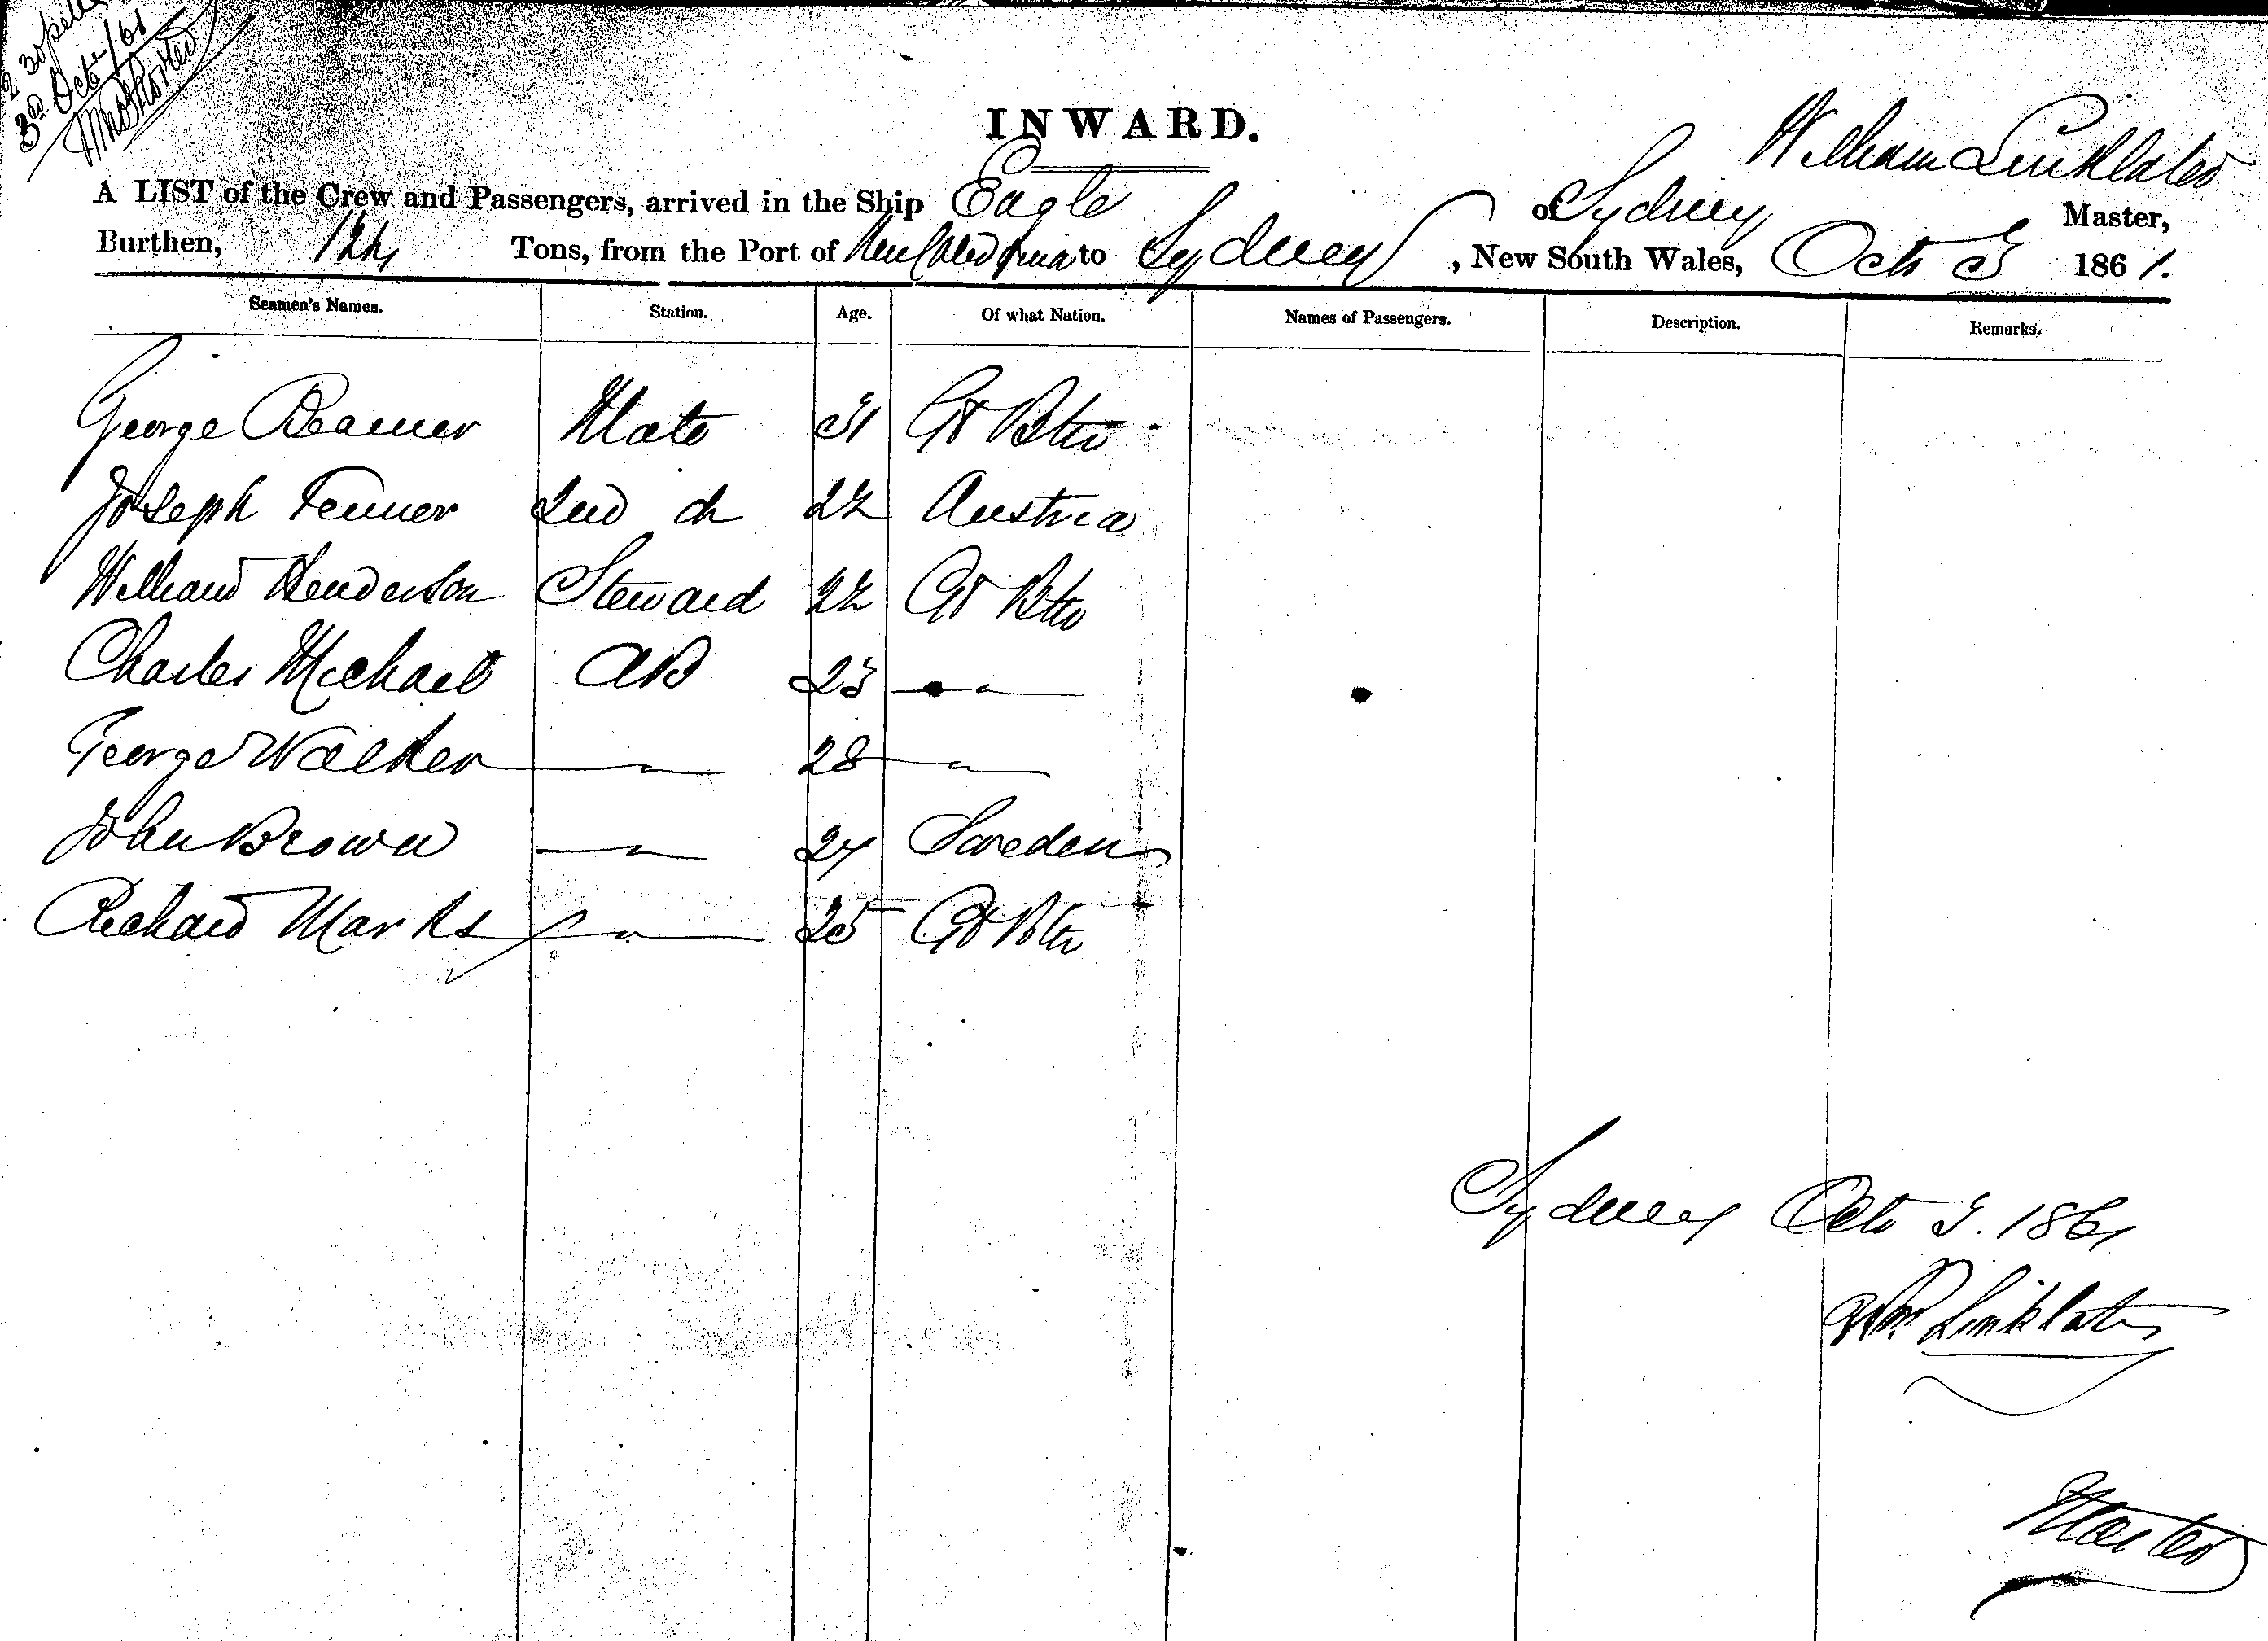 3rd Oct /61
INWARD.
William Linklater
A LIST of the Crew and Passengers, arrived in the Ship Eagle of Sydney Master,
Burthen, 124 Tons, from the Port of New Caledonia to Sydney, New South Wales, Oct 3 1861.
Seamen's Names. Station. Age. Of what Nation. Names of Passengers. Description. Remarks.
George Beamer Mate 31 Gt Btn
Joseph Fenner 2nd do 22 Austria
William Henderson Steward 22 Gt Btn
Charles Michael AB 23 — " —
George Walker — " — 28 — " —
John Brown — " — 24 Sweden
Richard Marks — " — 25 Gt Btn
Sydney Oct 3. 1861
Wm Linklater
Master